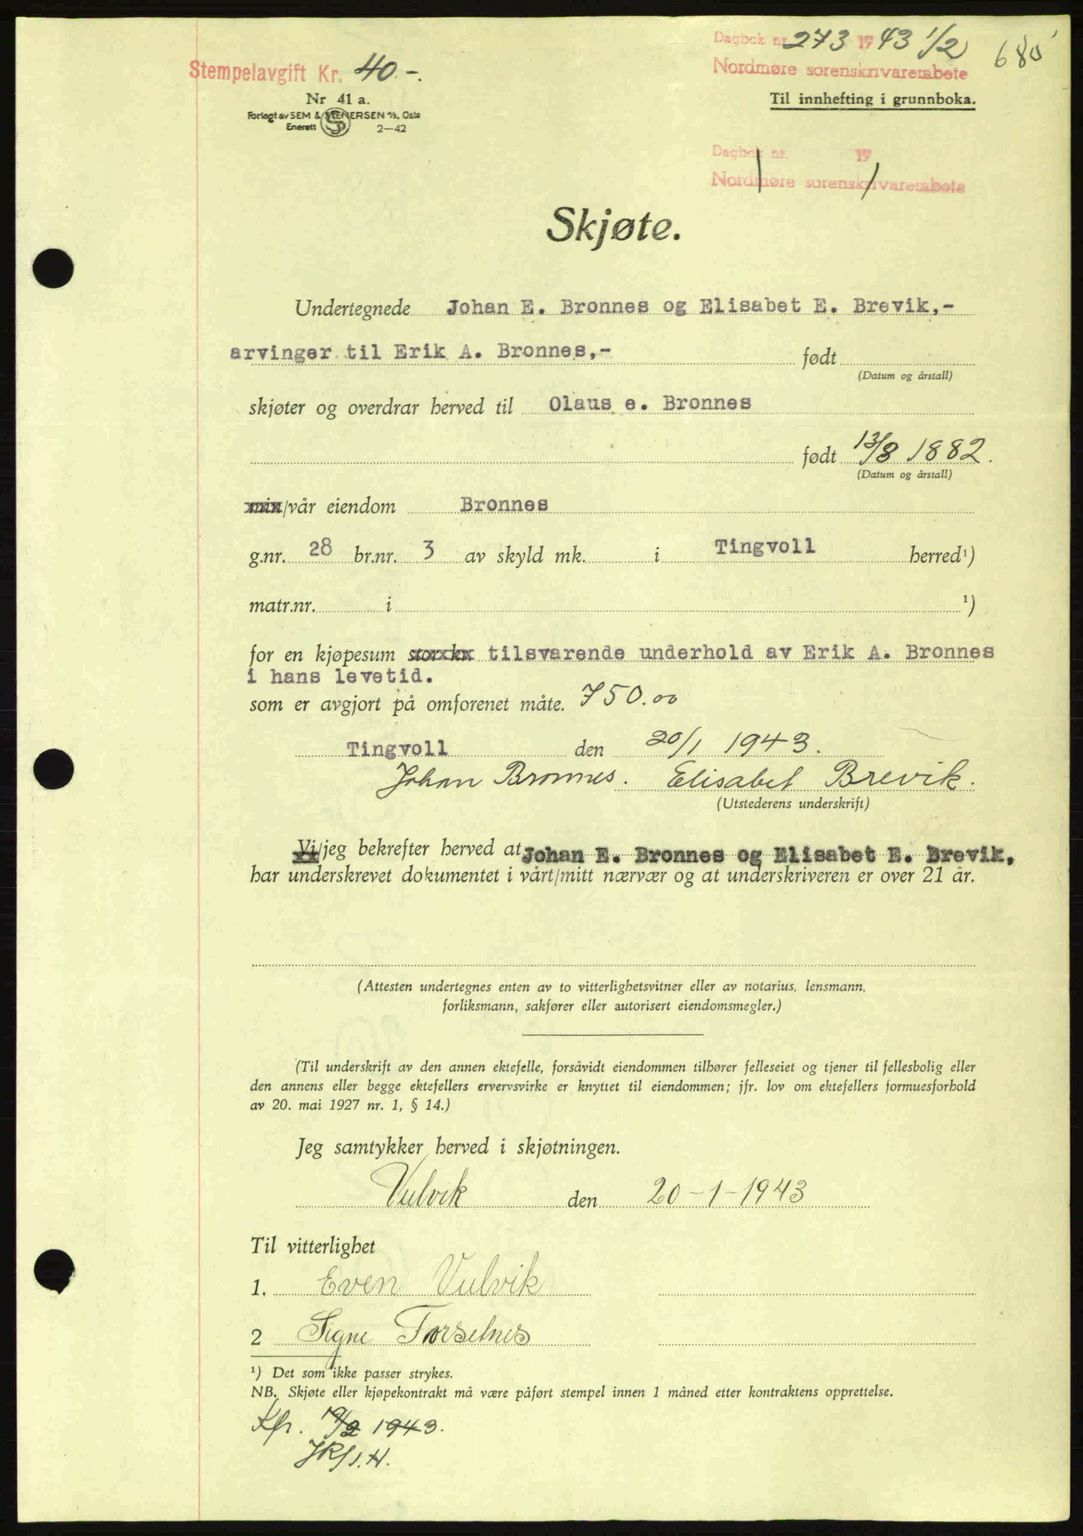 Stempelavgift Kr. 40.-.
Nr 41 a.
Forlagt av SEM & STENERSEN A/S, Oslo
Enerett 2-42
Dagbok nr. 273 1943 1/2 680
Nordmøre sorenskrivarembete
Til innhefting i grunnboka.
Dagbok nr. 19
Nordmøre sorenskrivarembete
Skjøte.
Undertegnede Johan E. Bronnes og Elisabet E. Brevik,-
arvinger til Erik A. Bronnes,- født
(Datum og årstall)
skjøter og overdrar herved til Olaus e. Bronnes
født 13/8 1882.
(Datum og årstall)
min/vår eiendom Bronnes
g.nr. 28 br.nr. 3 av skyld mk. i Tingvoll herred¹)
matr.nr. i ¹)
for en kjøpesum tilsvarende underhold av Erik A. Bronnes
i hans levetid.
som er avgjort på omforenet måte. 750.00
Tingvoll den 20/1 1943.
Johan Bronnes. Elisabet Brevik.
(Utstederens underskrift)
Vi/jeg bekrefter herved at Johan E. Bronnes og Elisabet E. Brevik,
har underskrevet dokumentet i vårt/mitt nærvær og at underskriveren er over 21 år.
(Attesten undertegnes enten av to vitterlighetsvitner eller av notarius, lensmann,
forliksmann, sakfører eller autorisert eiendomsmegler.)
(Til underskrift av den annen ektefelle, forsåvidt eiendommen tilhører felleseiet og tjener til fellesbolig eller
den annens eller begge ektefellers ervervsvirke er knyttet til eiendommen; jfr. lov om ektefellers formuesforhold
av 20. mai 1927 nr. 1, § 14.)
Jeg samtykker herved i skjøtningen.
Vulvik den 20-1-1943
Til vitterlighet
1. Even Vulvik
2 Signe Torselnes
¹) Det som ikke passer strykes.
NB. Skjøte eller kjøpekontrakt må være påført stempel innen 1 måned etter kontraktens opprettelse.
Kfr. 19/2 1943.